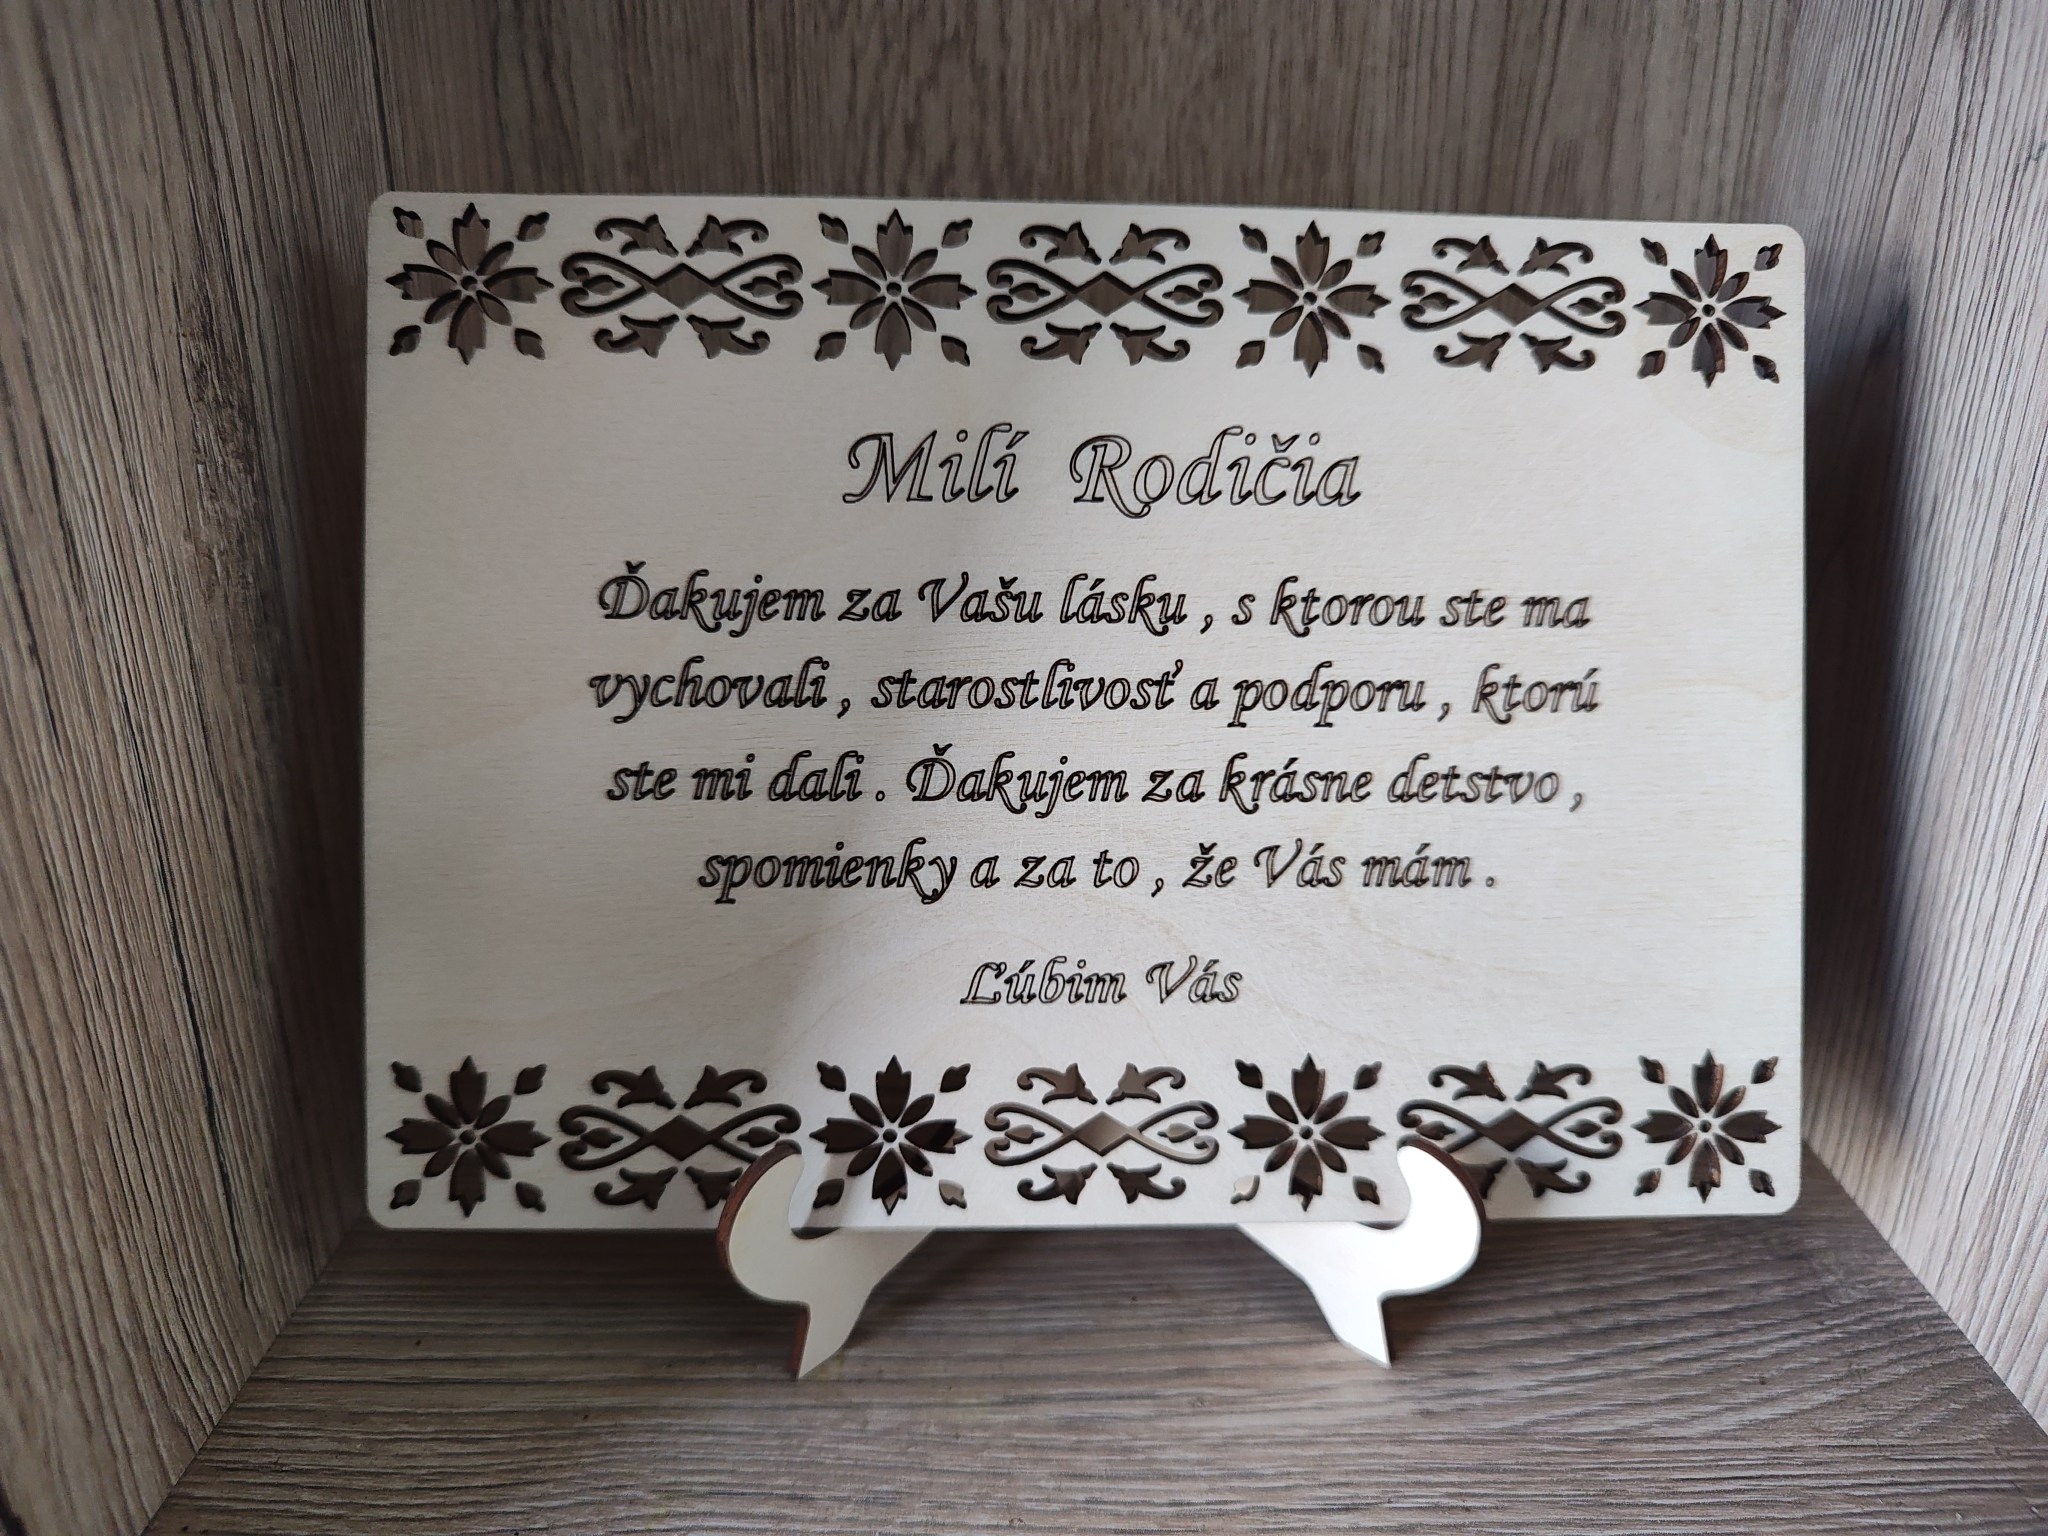 Milí Rodičia
Ďakujem za Vašu lásku , s ktorou ste ma
vychovali , starostlivosť a podporu , ktorú
ste mi dali . Ďakujem za krásne detstvo ,
spomienky a za to , že Vás mám .
Ľúbim Vás